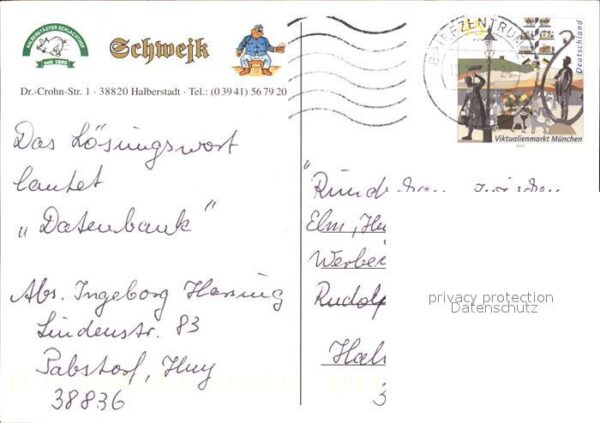 HALBERSTÄDTER SCHLACHTHOF
SEIT 1890
Schwejk
Dr.-Crohn-Str. 1 · 38820 Halberstadt · Tel.: (0 39 41) 56 79 20
BRIEFZENTRUM
Deutschland
Viktualienmarkt München
Das Lösungswort
lautet
„Datenbank"
Abs. Ingeborg
Lindenstr. 83
Pabstorf, Huy
38836
Elm, Hu
Werbe
Rudolf
Hal
3
privacy protection
Datenschutz